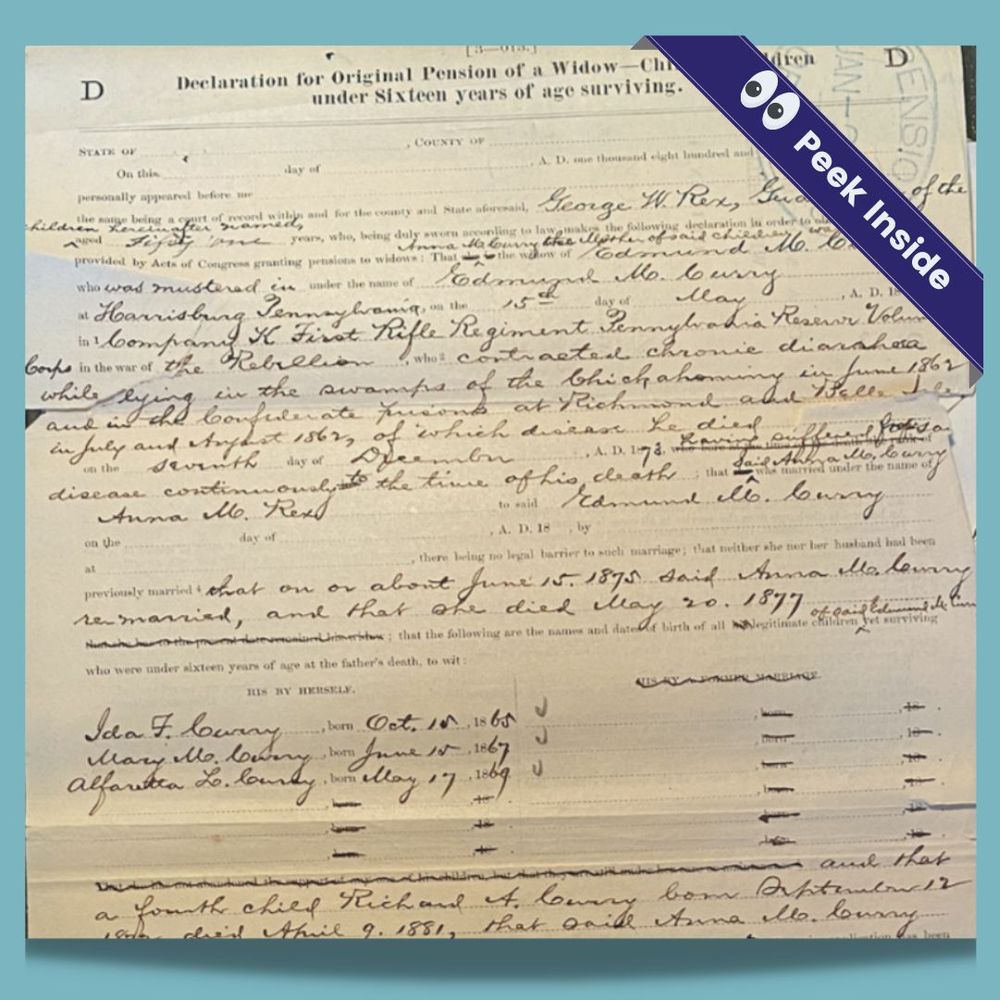 [3—013.]
D Declaration for Original Pension of a Widow—Chi dren D
under Sixteen years of age surviving.
PENSIO
JAN
👀 Peek Inside
STATE OF , COUNTY OF
On this day of , A. D. one thousand eight hundred and
personally appeared before me
the same being a court of record within and for the county and State aforesaid, George W. Rex, of the
children hereinafter named,
aged Fifty one years, who, being duly sworn according to law, makes the following declaration in order to
Anna M. Curry the Mother of said children was
provided by Acts of Congress granting pensions to widows: That the widow of Edmund M. C
who was mustered in under the name of Edmund M. Curry
at Harrisburg Pennsylvania, on the 15th day of May , A. D. 18
in Company K First Rifle Regiment Pennsylvania Reserve Volun
Corps in the war of the Rebellion , who contracted chronic diarahoea
while lying in the swamps of the Chickahominy in June 1862
and in the Confederate prisons at Richmond and Belle
in July and August 1862, of which disease he died
on the seventh day of December , A. D. 1873. having suffered from said
disease continuously to the time of his death ; that said Anna M. Curry was married under the name of
Anna M. Rex to said Edmund M. Curry
on the day of , A. D. 18 , by
at , there being no legal barrier to such marriage; that neither she nor her husband had been
previously married that on or about June 15. 1875 said Anna M. Curry
remarried, and that she died May 20. 1877 of said Edmund M. Curr
; that the following are the names and dates of birth of all legitimate children yet surviving
who were under sixteen years of age at the father's death, to wit:
HIS BY HERSELF. HIS BY A FORMER MARRIAGE.
Ida F. Curry , born Oct. 15 , 1865 born 18
Mary M. Curry , born June 15 , 1867 born 18
Alfaretta L. Curry , born May 17 , 1869 born 18
born 18 born 18
born 18 born 18
born 18 born 18
and that
a fourth child Richard A. Curry born September 12
died April 9. 1881, that said Anna M. Curry